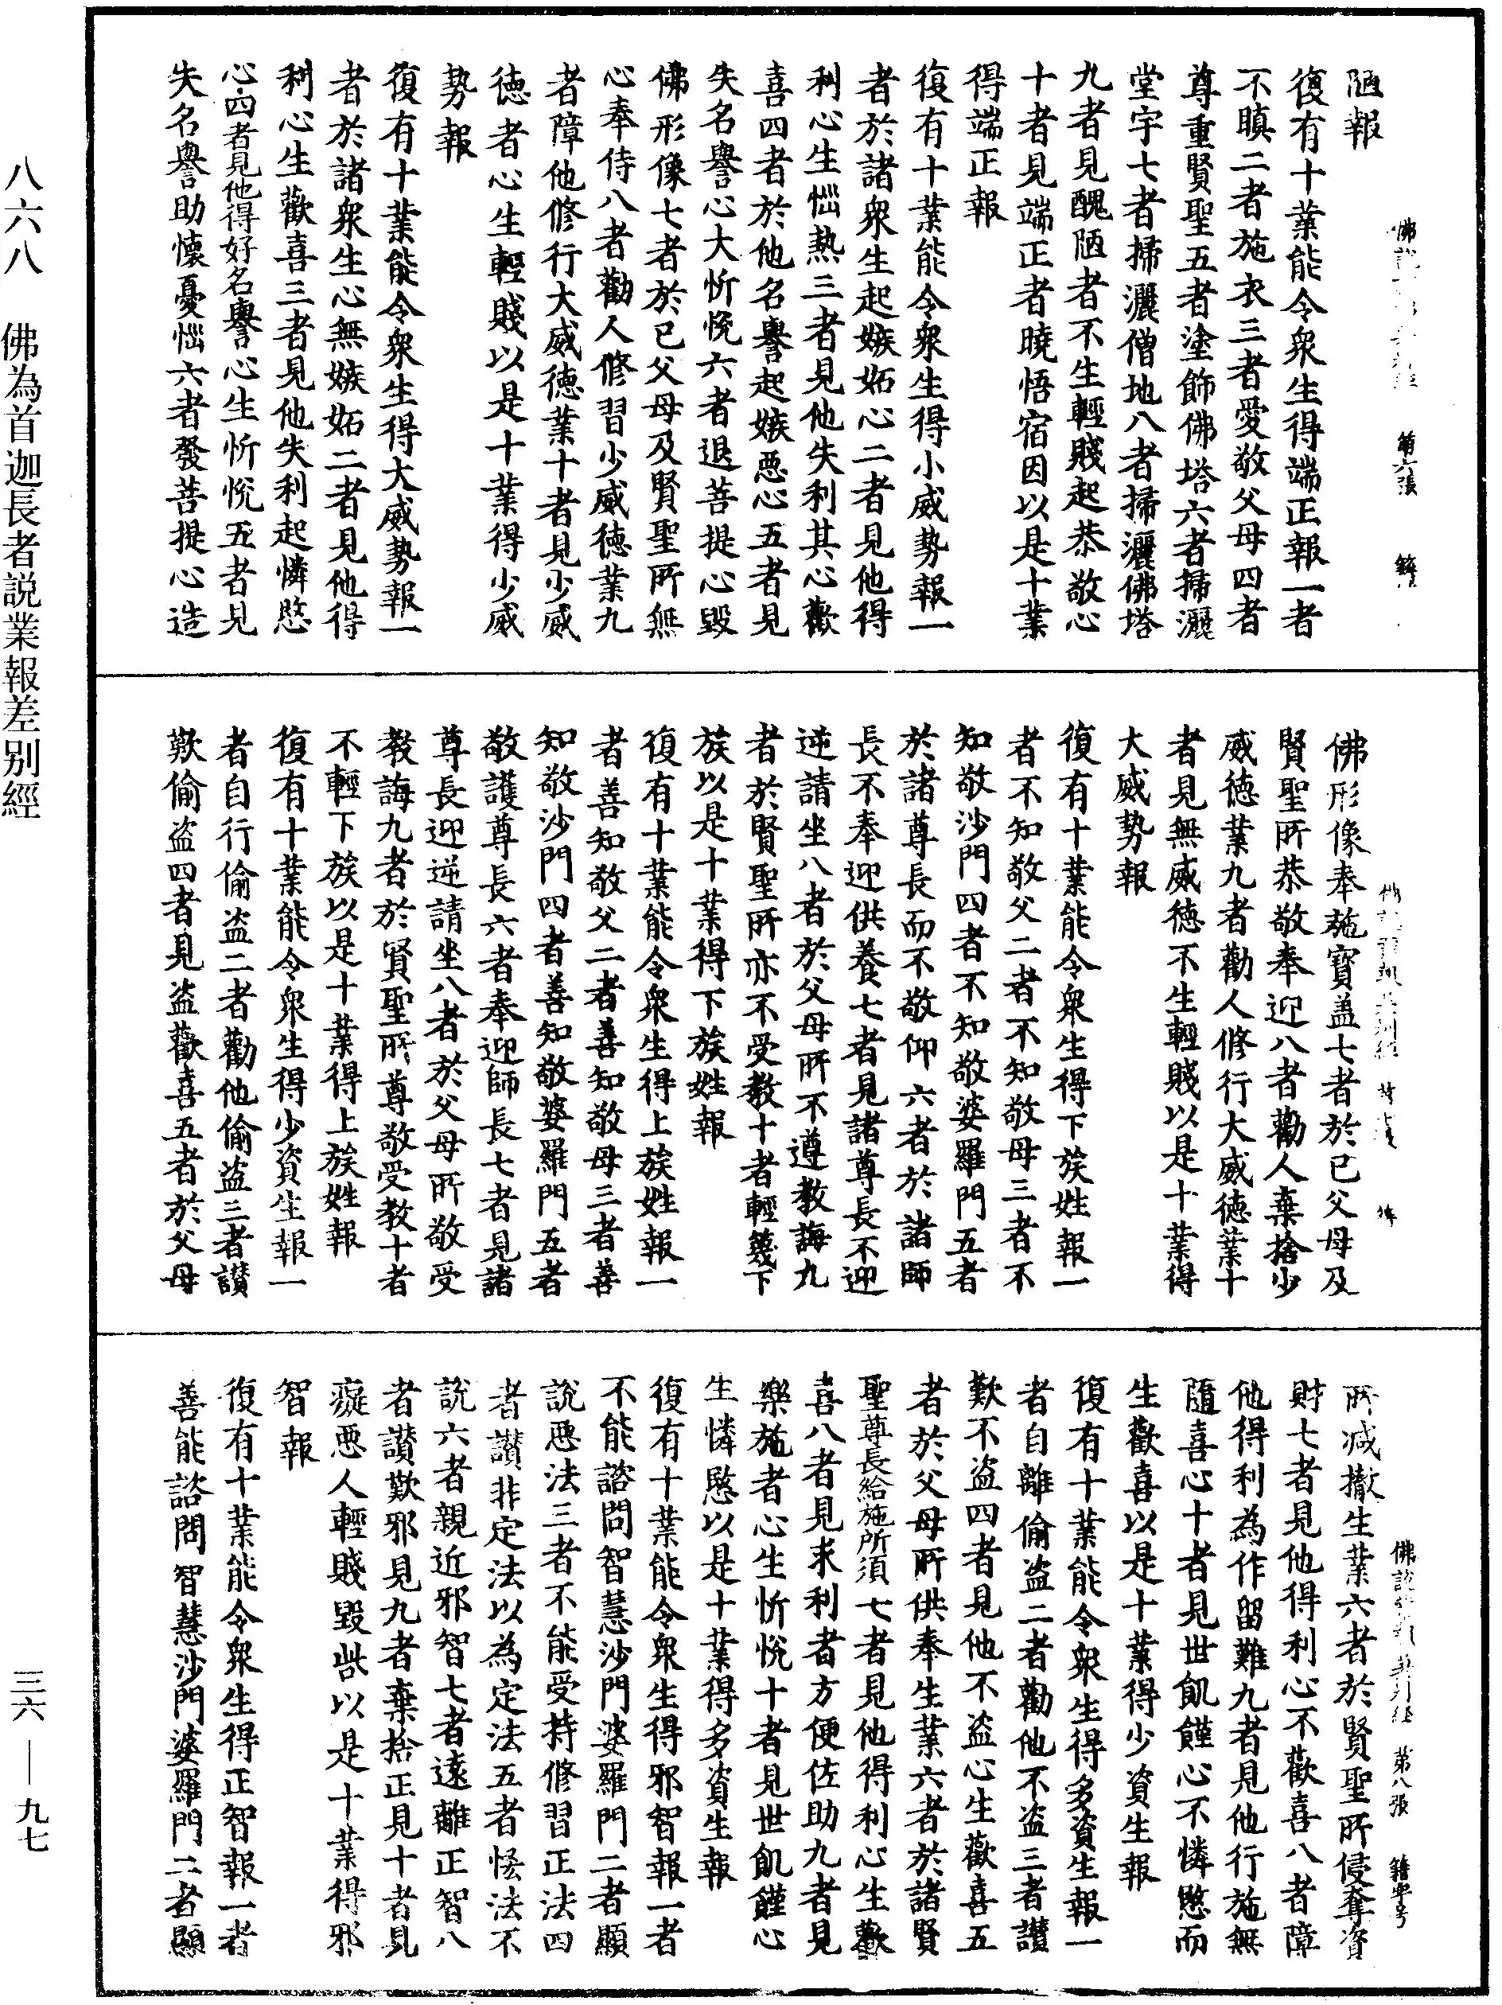 陋報
復有十業能令衆生得端正報一者
不瞋二者施衣三者愛敬父母四者
尊重賢聖五者塗飾佛塔六者掃灑
堂宇七者掃灑僧地八者掃灑佛塔
九者見醜陋者不生輕賤起恭敬心
十者見端正者曉悟宿因以是十業
得端正報
復有十業能令衆生得小威勢報一
者於諸衆生起嫉妬心二者見他得
利心生惱熱三者見他失利其心歡
喜四者於他名譽起嫉惡心五者見
失名譽心大忻悅六者退菩提心毀
佛形像七者於己父母及賢聖所無
心奉侍八者勸人修習少威德業九
者障他修行大威德業十者見少威
德者心生輕賤以是十業得少威
勢報
復有十業能令衆生得大威勢報一
者於諸衆生心無嫉妬二者見他得
利心生歡喜三者見他失利起憐愍
心四者見他得好名譽心生忻悅五者見
失名譽助懷憂惱六者發菩提心造
佛形像奉施寶盖七者於己父母及
賢聖所恭敬奉迎八者勸人棄捨少
威德業九者勸人修行大威德業十
者見無威德不生輕賤以是十業得
大威勢報
復有十業能令衆生得下族姓報一
者不知敬父二者不知敬母三者不
知敬沙門四者不知敬婆羅門五者
於諸尊長而不敬仰六者於諸師
長不奉迎供養七者見諸尊長不迎
逆請坐八者於父母所不遵教誨九
者於賢聖所亦不受教十者輕篾下
族以是十業得下族姓報
復有十業能令衆生得上族姓報一
者善知敬父二者善知敬母三者善
知敬沙門四者善知敬婆羅門五者
敬護尊長六者奉迎師長七者見諸
尊長迎逆請坐八者於父母所敬受
教誨九者於賢聖所尊敬受教十者
不輕下族以是十業得上族姓報
復有十業能令衆生得少資生報一
者自行偷盗二者勸他偷盗三者讃
歎偷盗四者見盗歡喜五者於父母
所減撤生業六者於賢聖所侵奪資
財七者見他得利心不歡喜八者障
他得利為作留難九者見他行施無
隨喜心十者見世飢饉心不憐愍而
生歡喜以是十業得少資生報
復有十業能令衆生得多資生報一
者自離偷盗二者勸他不盗三者讃
歎不盗四者見他不盗心生歡喜五
者於父母所供奉生業六者於諸賢
聖尊長給施所須七者見他得利心生歡
喜八者見求利者方便佐助九者見
樂施者心生忻悅十者見世飢饉心
生憐愍以是十業得多資生報
復有十業能令衆生得邪智報一者
不能諮問智慧沙門婆羅門二者顯
說惡法三者不能受持修習正法四
者讃非定法以為定法五者恡法不
說六者親近邪智七者遠離正智八
者讃歎邪見九者棄捨正見十者見
癡惡人輕賤毀呰以是十業得邪
智報
復有十業能令衆生得正智報一者
善能諮問智慧沙門婆羅門二者顯
第六張
第八張
籍字号
八六八　佛為首迦長者説業報差别經
三六—九七